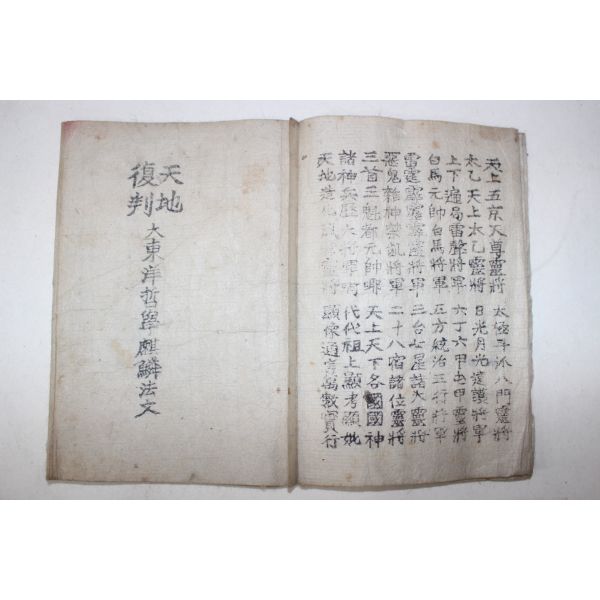 天地
復判
大東洋哲學麒麟法文
天上五京天尊靈將 太極斗 八門靈將
太乙天上太乙靈將 日光月光 護將軍
上下遍局雷聲將軍 六丁六甲 甲靈將
白馬元帥白馬將軍 五方統治五行將軍
雷霆霹靂 靈將軍 三台七星諸大靈將
惡鬼雜神禁亂將軍 二十八宿諸位靈將
三首三魁都元帥 天上天下各國國神
諸神兵 大將軍 代代祖上顯考顯妣
天地造化 將 顯 通 萬數實行